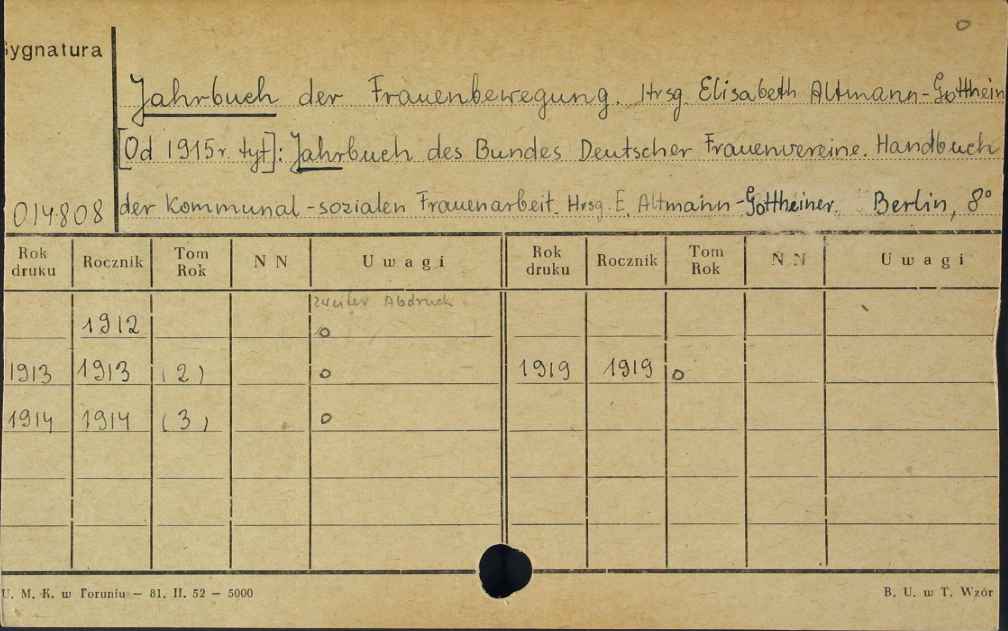 Sygnatura
O
Jahrbuch der Frauenbewegung. Hrsg. Elisabeth Altmann-Gotthein
[Od 1915 r. tyt]: Jahrbuch des Bundes Deutscher Frauenvereine. Handbuch
014808 der kommunal-sozialen Frauenarbeit. Hrsg. E. Altmann-Gottheiner. Berlin, 8°
Rok druku Rocznik Tom Rok N N Uwagi Rok druku Rocznik Tom Rok N N Uwagi
zweiter Abdruck
1912 o
1913 1913 (2) o 1919 1919 o
1914 1914 (3) o
U. M. K. w Toruniu — 81. II. 52 — 5000 B. U. w T. Wzór